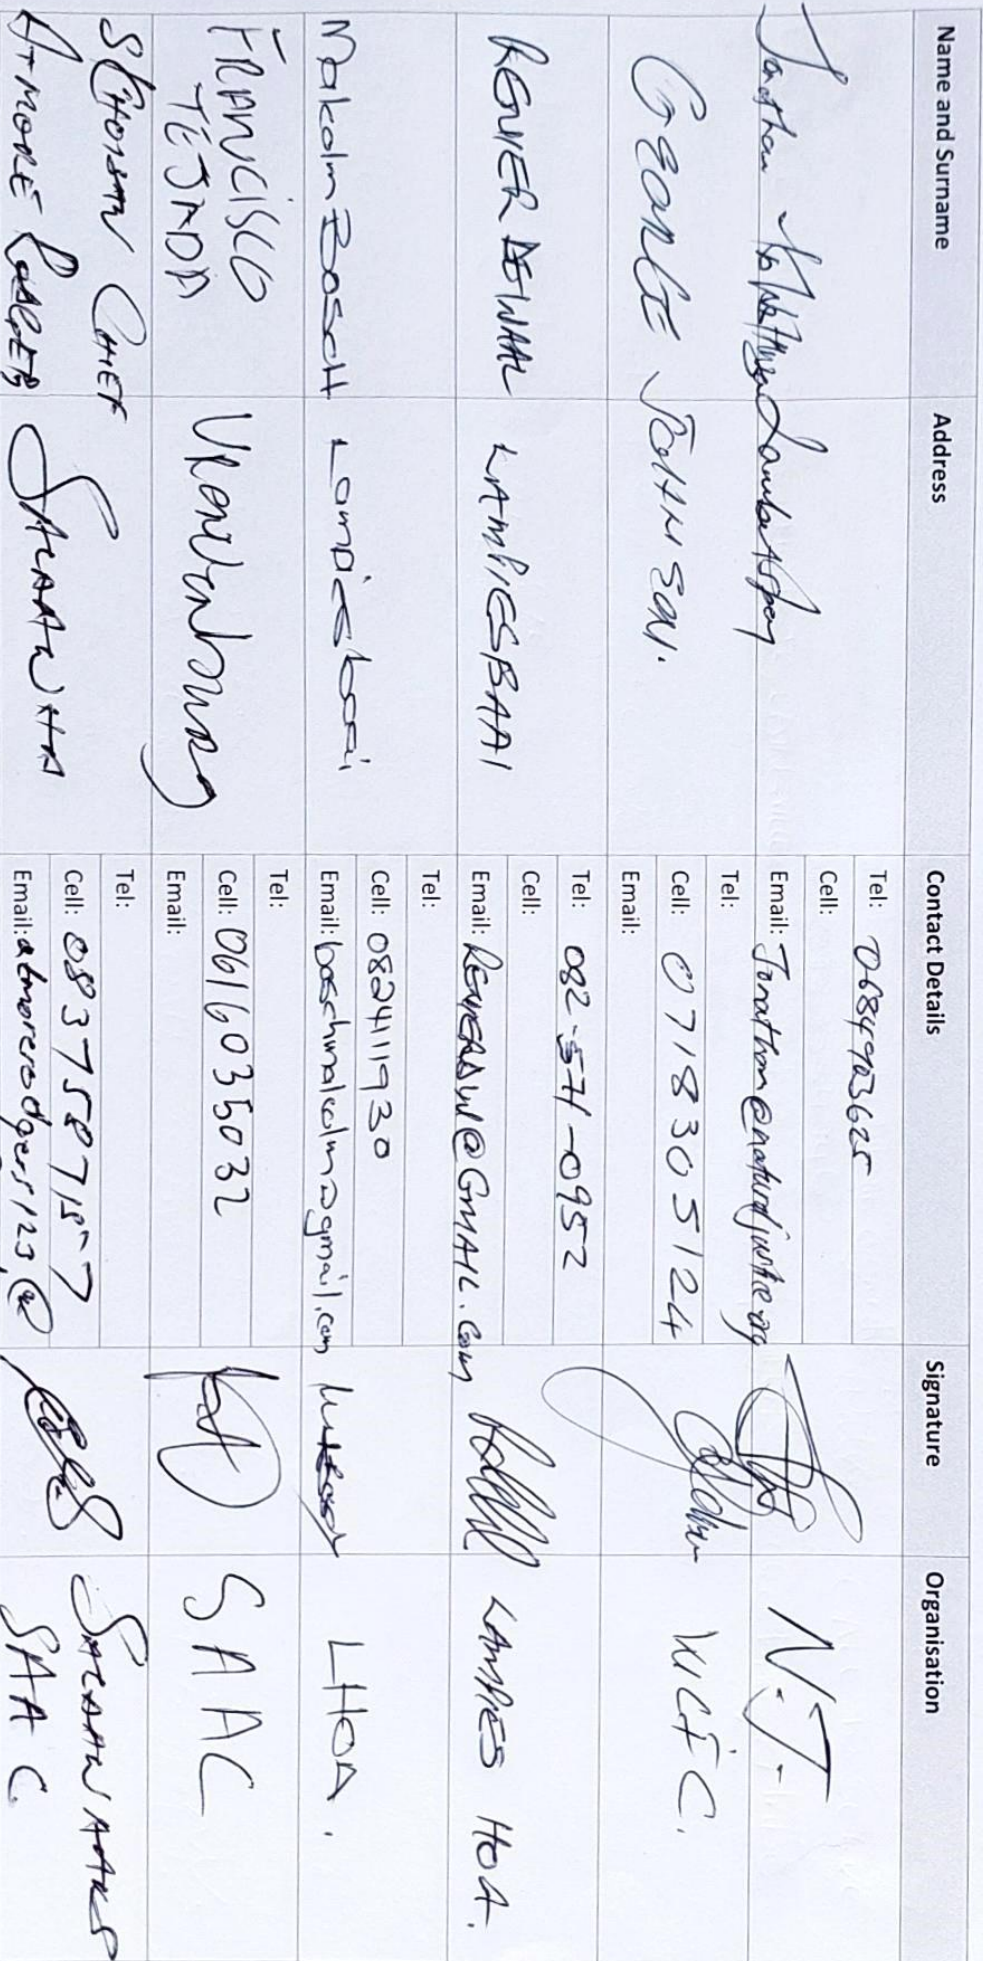 Name and Surname Address Contact Details Signature Organisation
Jonathan
Tel: 0684903625
Cell:
Email: Jonathan@naturaljustice.org
N.J.
GEORGE JOHNSON.
Tel:
Cell: 0718305124
Email:
WCFC.
RENIER DE WAAL LAMPIESBAAI
Tel: 082-571-0952
Cell:
Email: RENIERDW@GMAIL.Com
LAMPIES HOA.
Malcolm BoscH Lampiesbaai
Tel:
Cell: 0824111930
Email: boschmalcolm2@gmail.com
LHOA.
FRANCISCO
TEJADA
Vredenburg
Tel:
Cell: 0616035032
Email:
SAAC
CHIEF
SALDANHA
Tel:
Cell: 083 758 7157
Email: atmorerodgers123@
SAAC